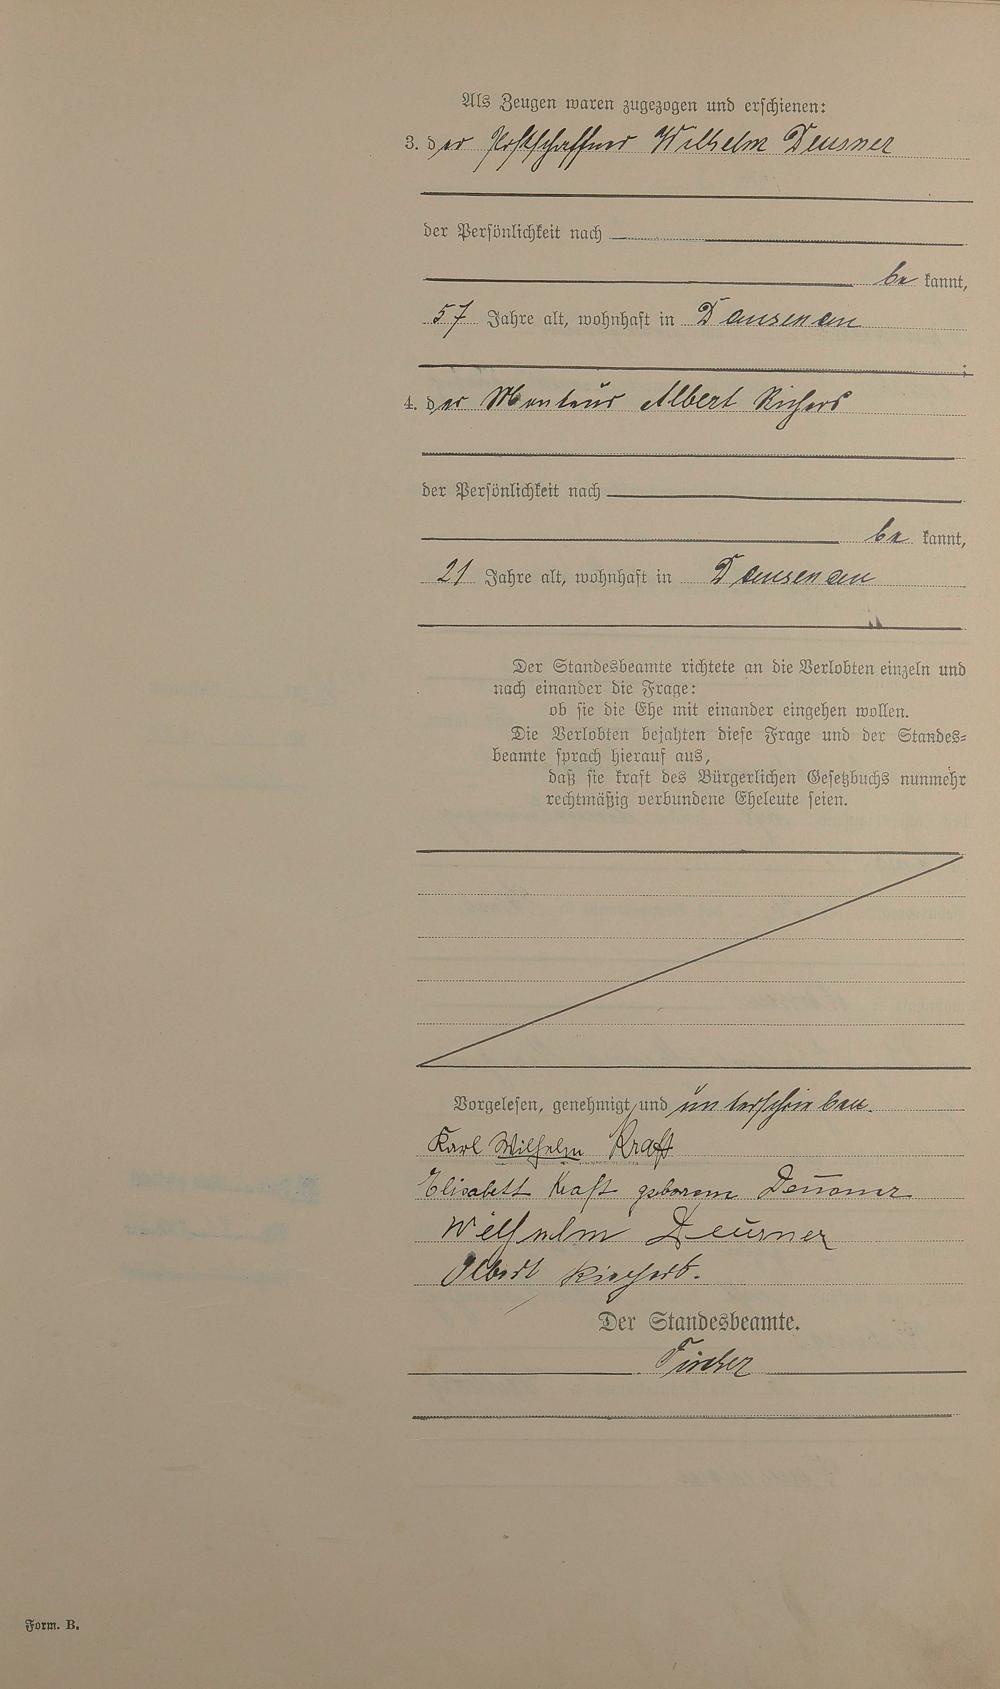 Als Zeugen waren zugezogen und erschienen:
3. der Postschaffner Wilhelm Deusner
der Persönlichkeit nach
be kannt,
57 Jahre alt, wohnhaft in Dausenau
;
4. der Monteur Albert
der Persönlichkeit nach
be kannt,
21 Jahre alt, wohnhaft in Dausenau
Der Standesbeamte richtete an die Verlobten einzeln und
nach einander die Frage:
ob sie die Ehe mit einander eingehen wollen.
Die Verlobten bejahten diese Frage und der Standes=
beamte sprach hierauf aus,
daß sie kraft des Bürgerlichen Gesetzbuchs nunmehr
rechtmäßig verbundene Eheleute seien.
Vorgelesen, genehmigt und unterschrieben.
Karl Wilhelm Kraft
Elisabett Kraft geborene Deusner
Wilhelm Deusner
Albert
Der Standesbeamte.
Fischer
Form. B.